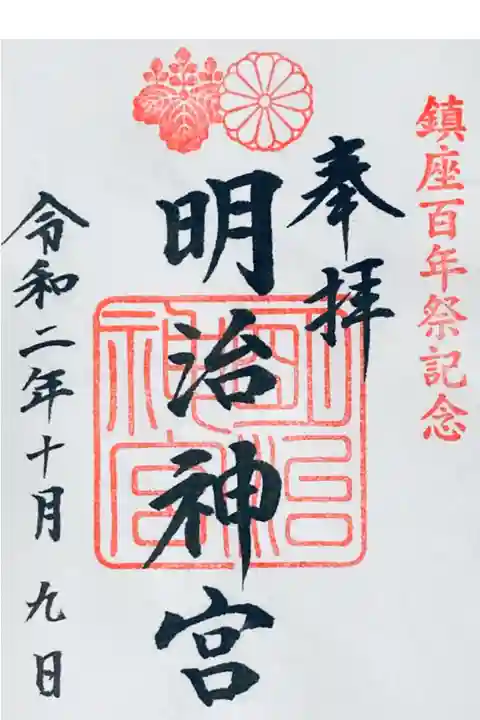 鎮座百年祭記念
奉拝
明治神宮
明治神宮
令和二年十月九日